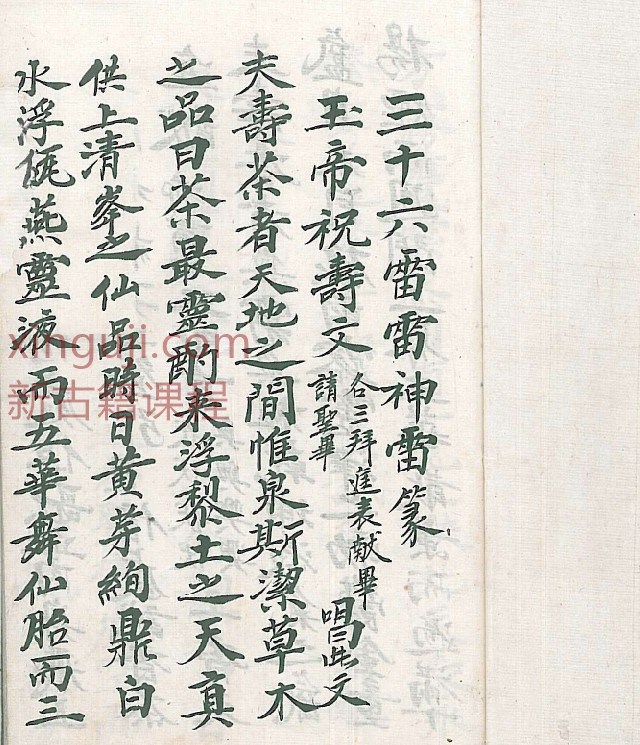 三十六雷雷神雷篆
玉帝祝壽文 各三拜進表献畢 請聖畢 唱此文
夫壽茶者天地之間惟泉斯潔草木
之品曰茶最靈酌来浮黎土之天真
供上清峯之仙品時曰黄芽絢鼎白
水浮甌燕靈液而五華舞仙胎而三
xinguji.com
新古籍课程